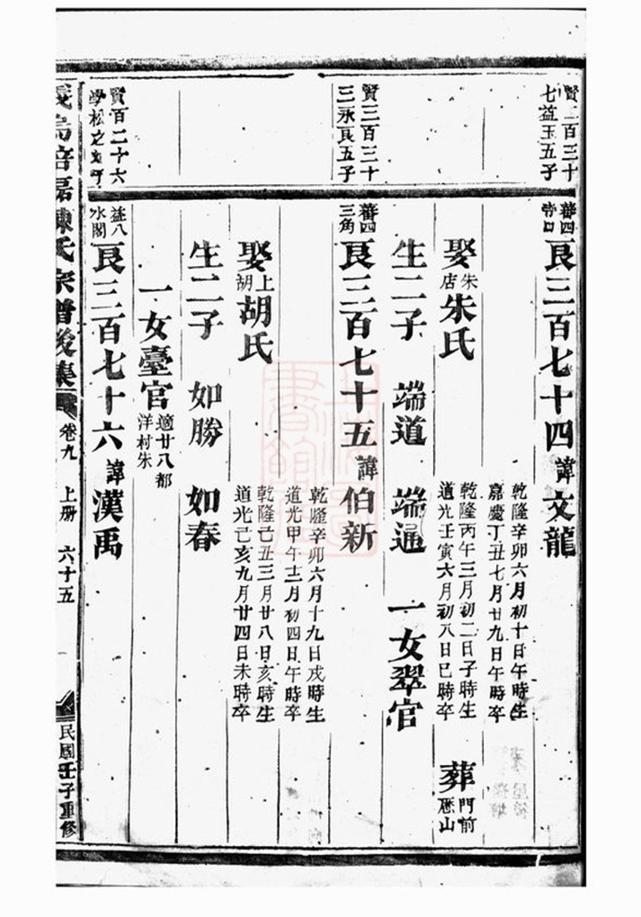 賢二百三十
七益玉五子
蕃四
良三百七十四諱文龍
乾隆辛卯六月初十日午時生
嘉慶丁丑七月廿九日午時卒
娶朱店朱氏
乾隆丙午三月初二日子時生
道光壬寅六月初八日巳時卒
葬門前
山
生二子 端道 端通 一女翠官
賢三百三十
三永良五子
蕃四
三角
良三百七十五諱伯新
乾隆辛卯六月十九日戌時生
道光甲午十二月初四日午時卒
娶上胡胡氏
乾隆己丑三月廿八日亥時生
道光己亥九月廿四日未時卒
生二子 如勝 如春
一女臺官適廿八都
洋村朱
賢百二十六
益八
水閣
良三百七十六諱漢禹
義烏倍磊陳氏宗譜後集
卷九 上册 六十五
民國壬子重修